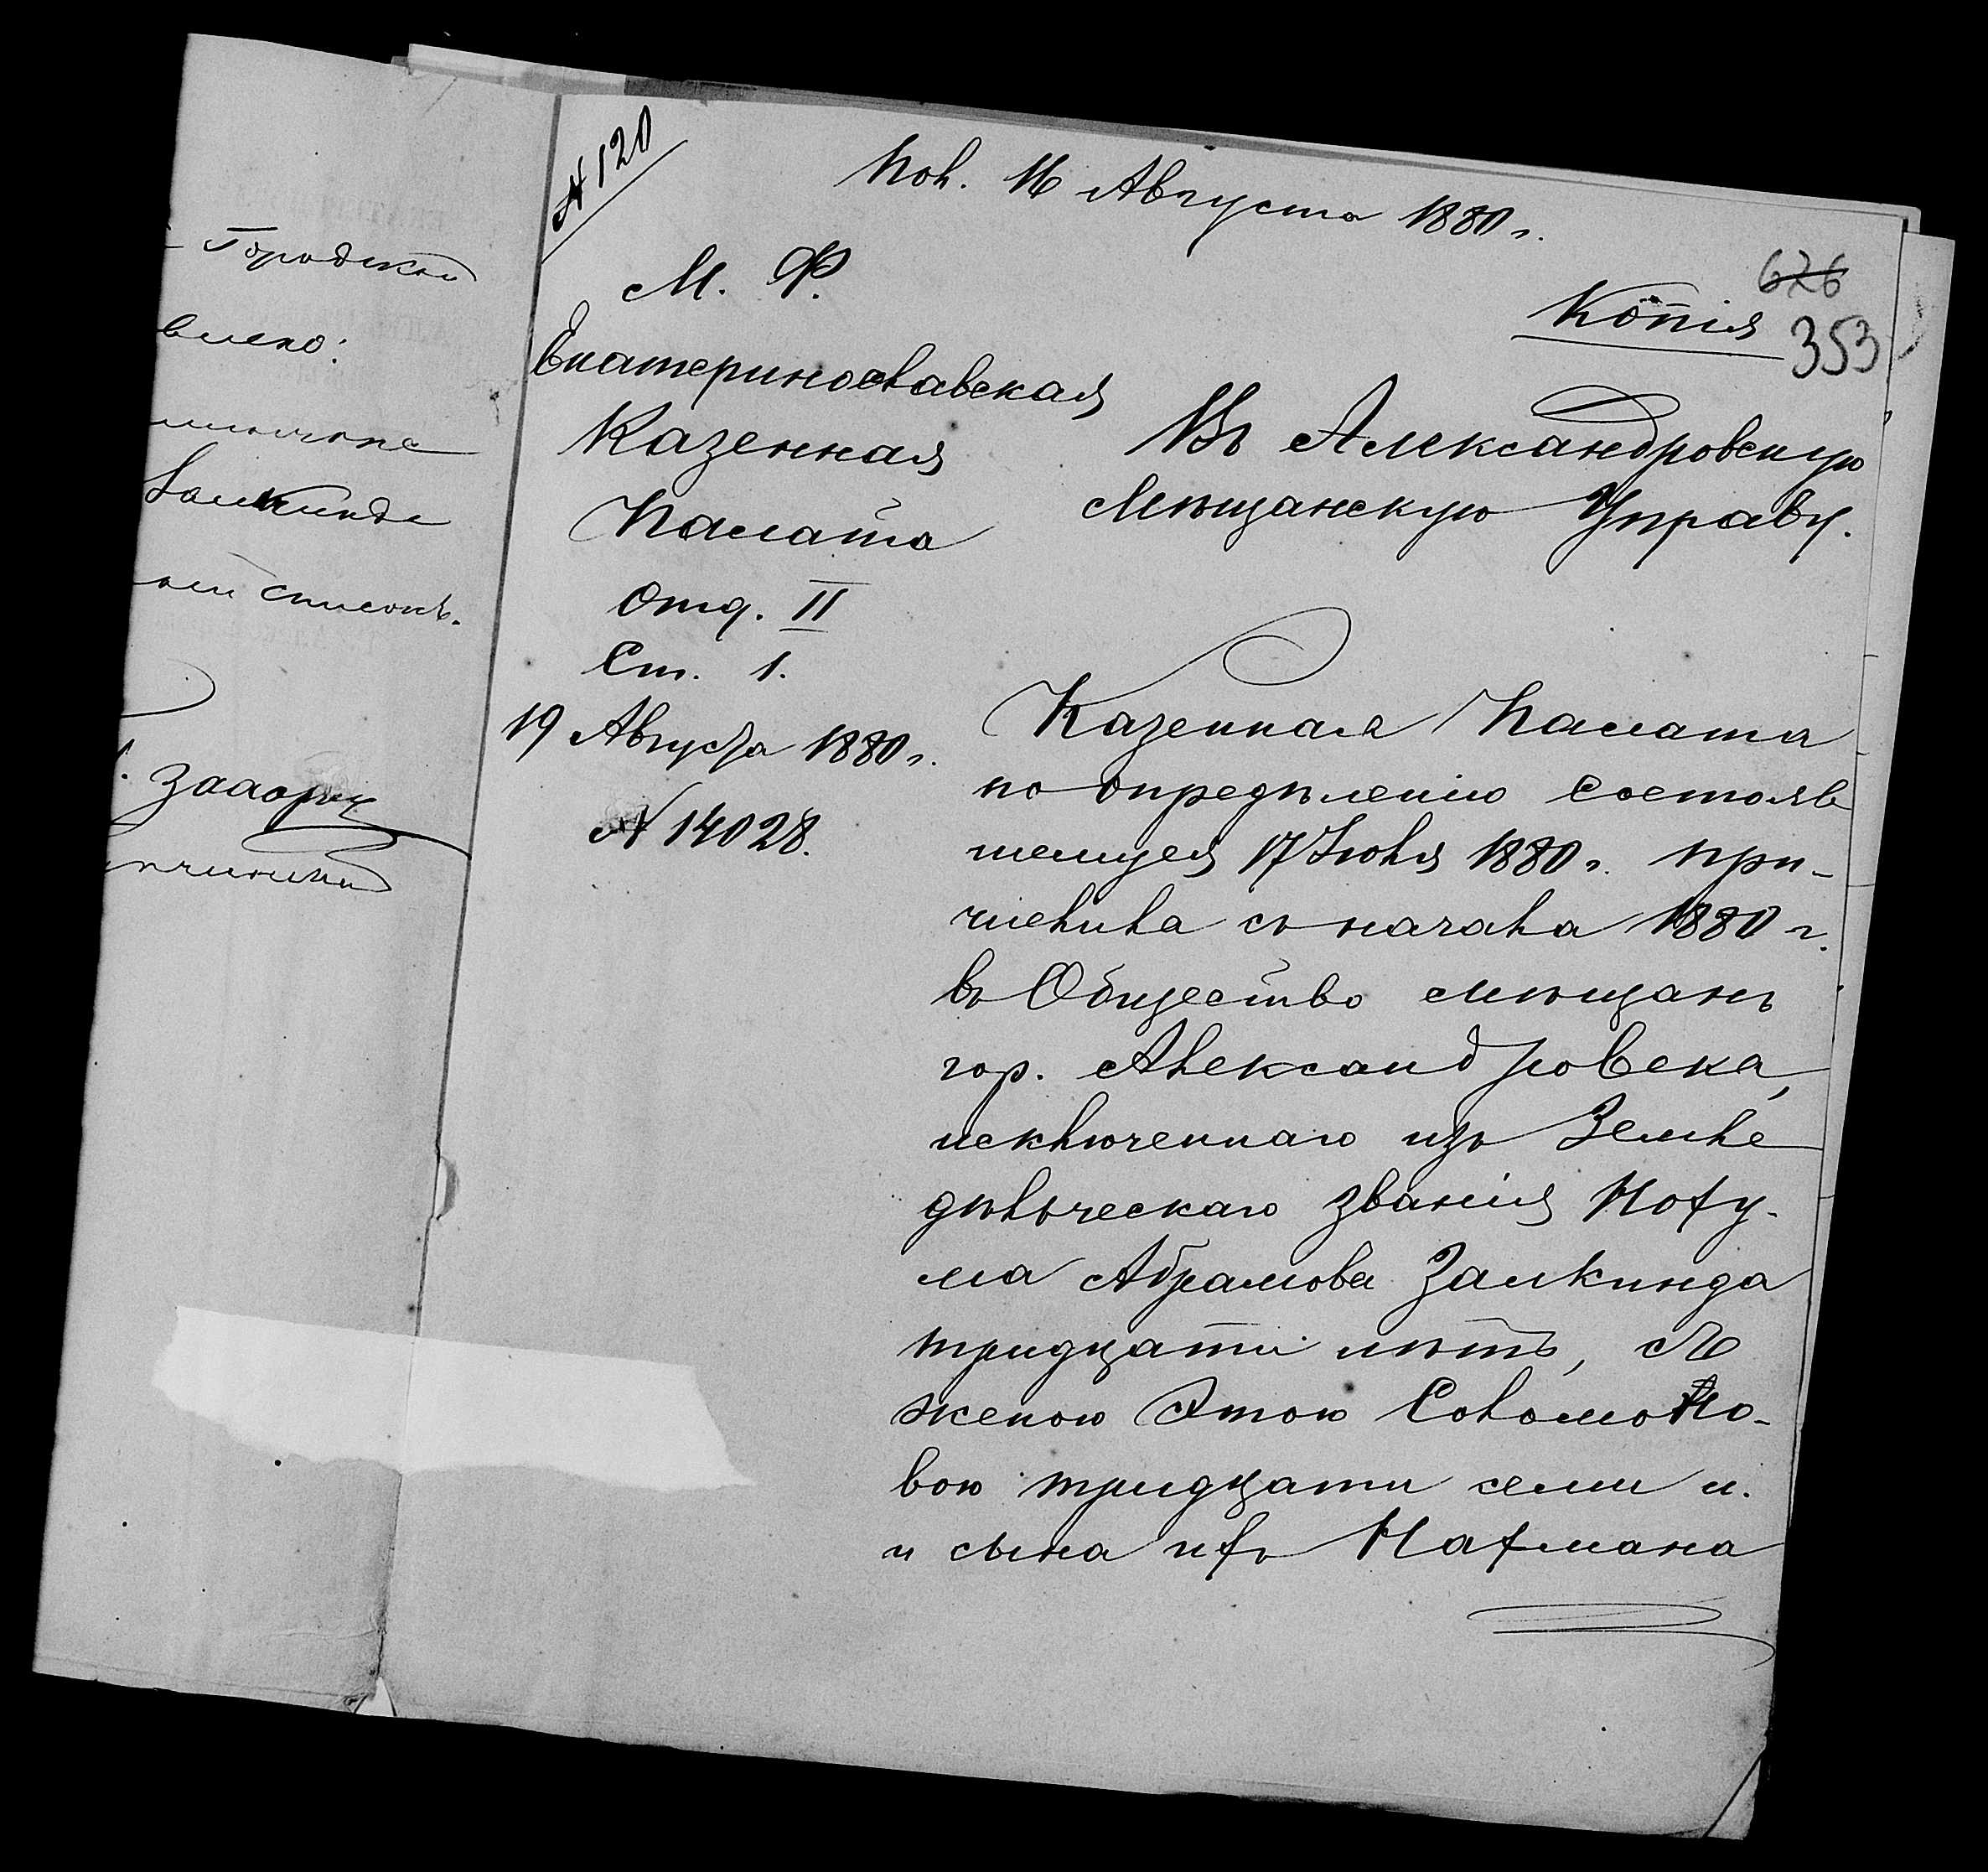 Городской
списокъ.
№ 120
Пол. 16 Августа 1880 г.
М. Ф.
Екатеринославская
Казенная
Палата
Отд. II
Ст. 1.
19 Августа 1880 г.
№ 14028.
626
Копія
353
Въ Александровскую
Мѣщанскую Управу.
Казенная Палата
по опредѣленію состояв
шемуся 17 Іюля 1880 г. при-
числила съ начала 1880 г.
въ Общество мѣщанъ
гор. Александровска,
исключеннаго изъ Земле
дѣльческаго званіяНоху-
ма Абрамова Залкинда
тридцати лѣтъ, съ
женою Этою Соломоно-
вою тридцати семи л.
и сына ихъ Нахмана